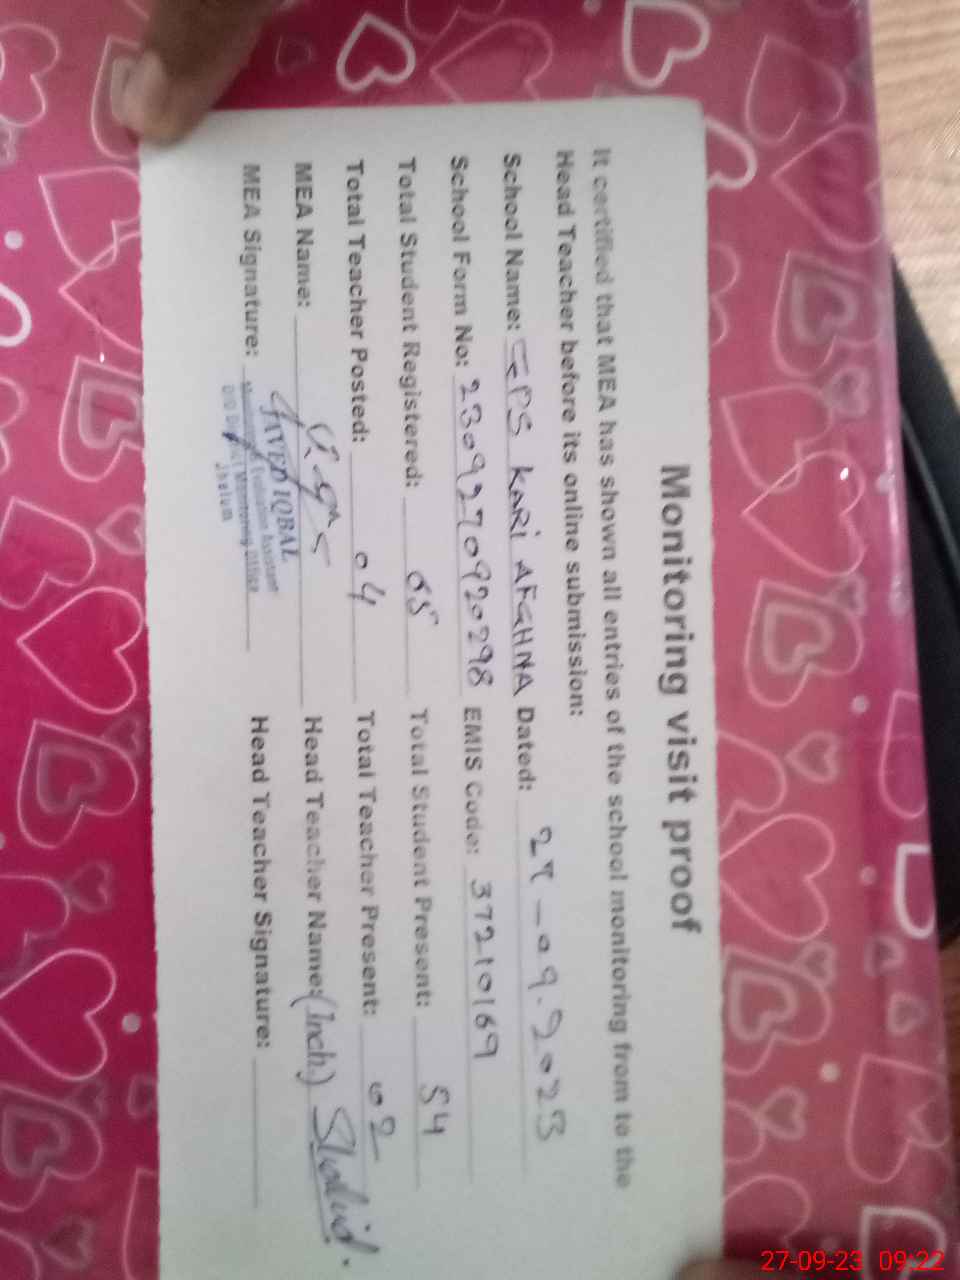 Monitoring visit proof
It certified that MEA has shown all entries of the school monitoring from to the
Head Teacher before its online submission:
School Name: GPS KARI AFGHNA Dated: 27-09-2023
School Form No: 2309270920298 EMIS Code: 37210169
Total Student Registered: 65 Total Student Present: 54
Total Teacher Posted: 04 Total Teacher Present: 02
MEA Name: Head Teacher Name: (Inch.)
MEA Signature: Head Teacher Signature:
JAVED IQBAL
Monitoring & Evaluation Assistant
Monitoring Officer
Jhelum
27-09-23 09:22